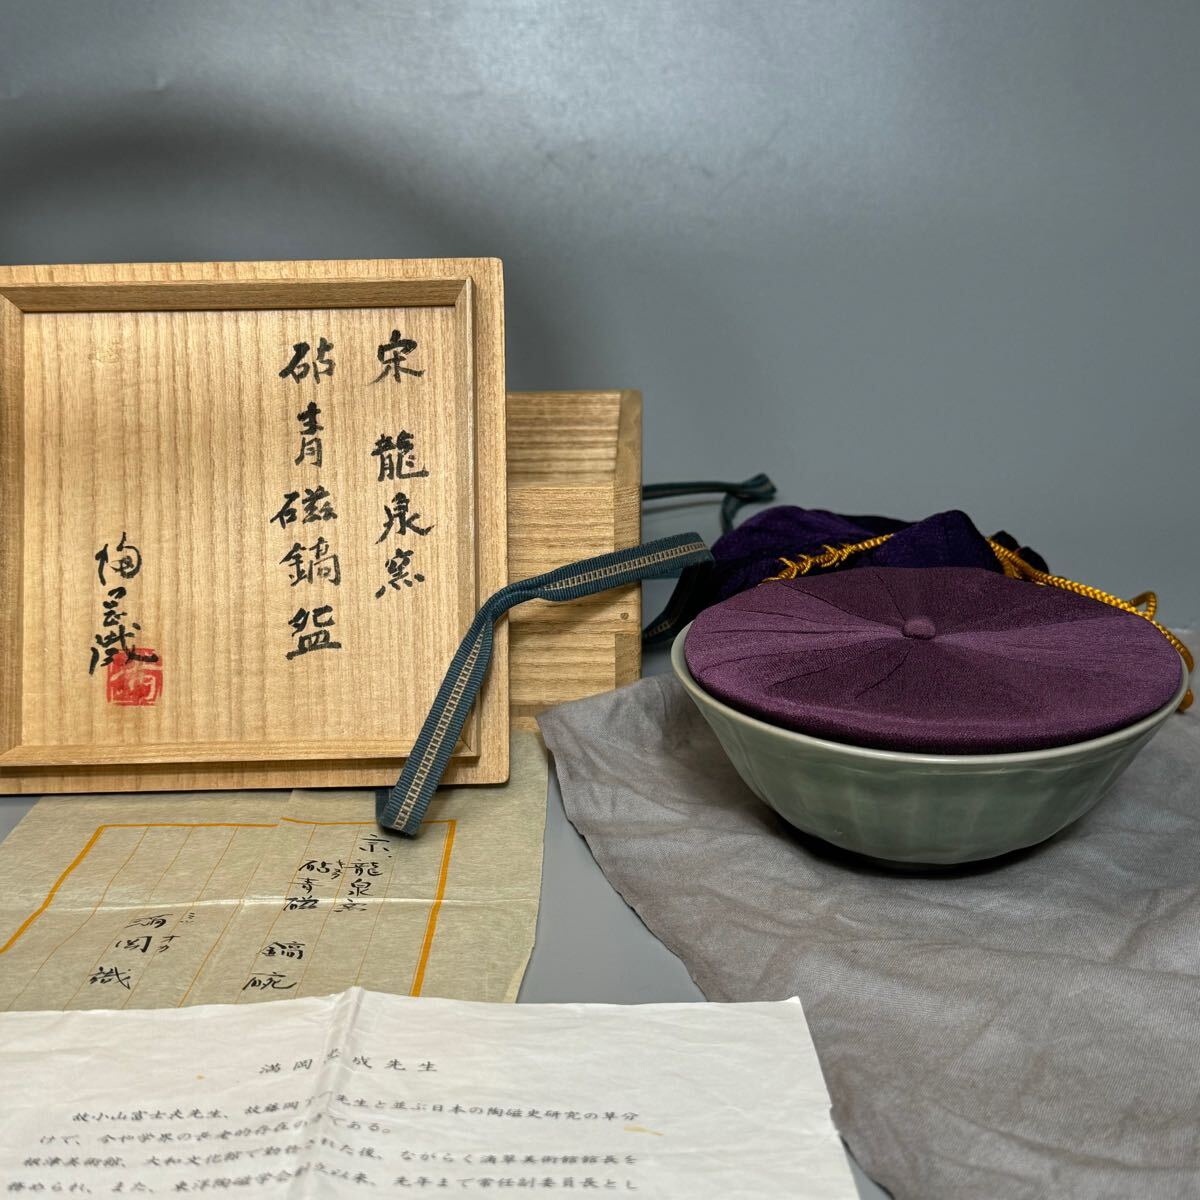 宋 龍泉窯
砧青磁鎬盌
満岡 識
宋、龍泉窯
砧青磁
鎬碗
満岡識
満岡忠成先生
故小山冨士夫先生、故藤岡了一先生と並ぶ日本の陶磁史研究の草分
けで、今や学界の長老的存在の である。
根津美術館、大和文化館で勤務された後、ながらく滴翠美術館館長を
務められ、また、東洋陶磁学会創立以来、先年まで常任副委員長とし